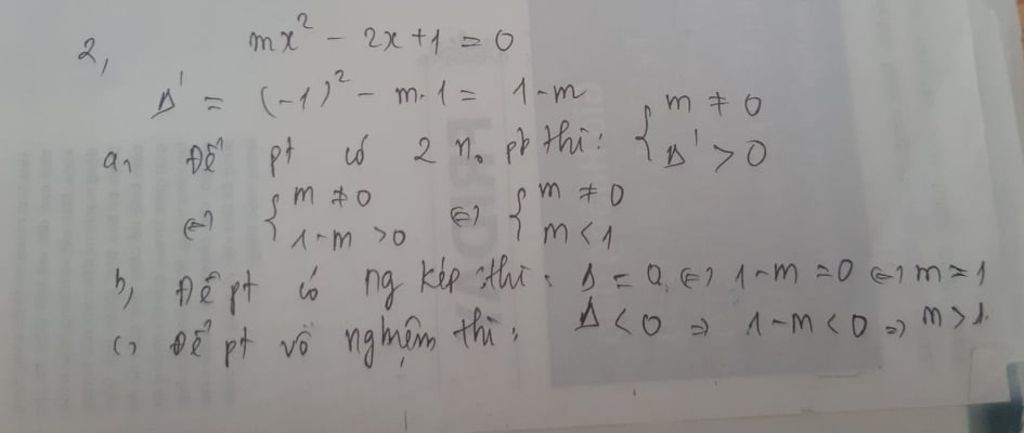 2, mx² - 2x + 1 = 0
Δ' = (-1)² - m.1 = 1-m
a, Để pt có 2 no pb thì: { m ≠ 0 Δ' > 0
⇔ { m ≠ 0 1-m > 0 ⇔ { m ≠ 0 m < 1
b, Để pt có ng kép thì: Δ = 0 ⇔ 1-m = 0 ⇔ m = 1
c, Để pt vô nghiệm thì: Δ < 0 ⇒ 1-m < 0 ⇒ m > 1.